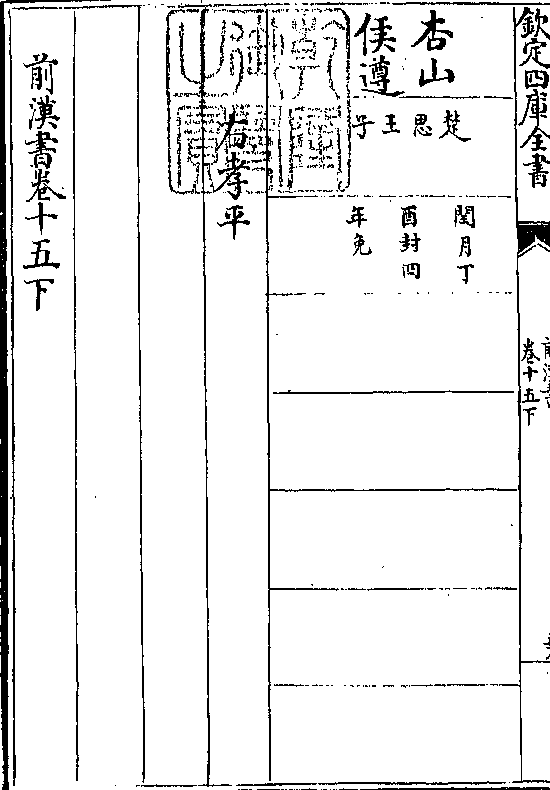 欽定四庫全書
卷十五下
杏山
侯遵
楚
思
王
子
閏月丁
酉封四
年免
右孝平
前漢書卷十五下